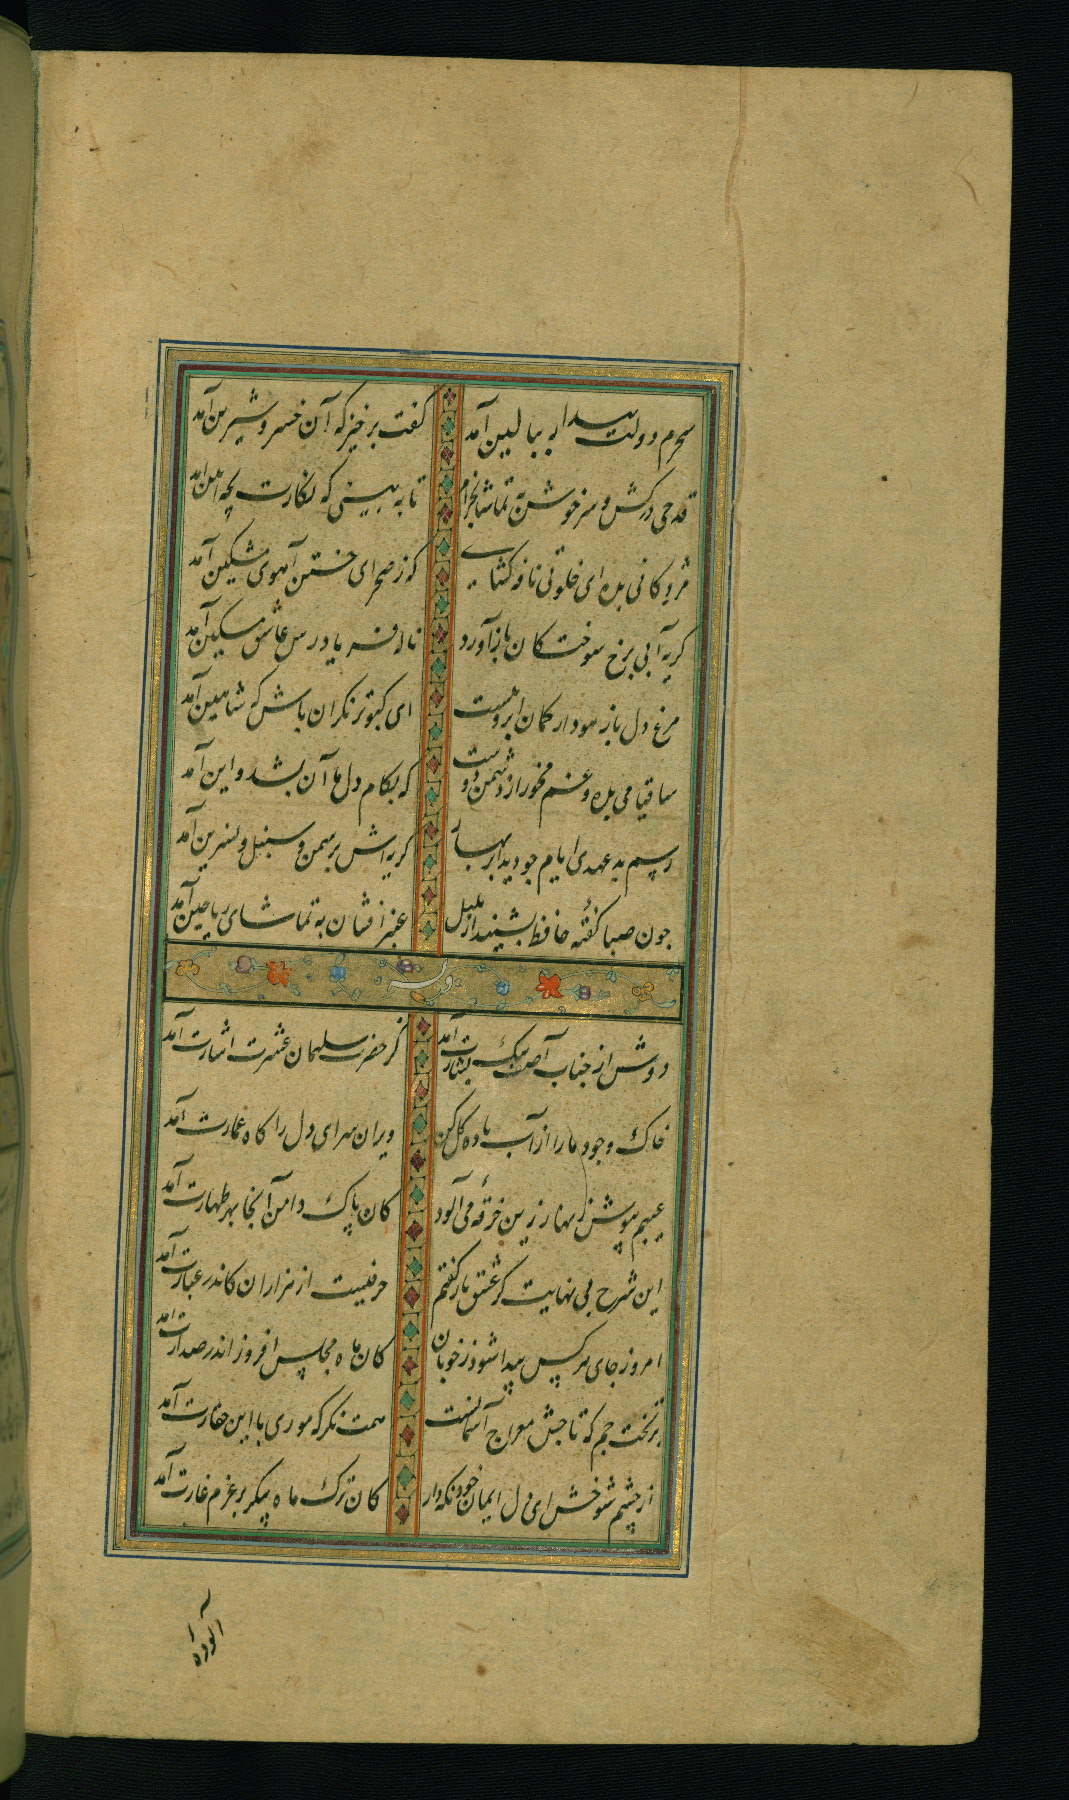 سحرم دولت بیدار ببالین آمد	گفت برخیز که آن خسرو شیرین آمد
قدحی درکش و سرخوش به تماشا بخرام	تا به بینی که نگارت بچه آیین آمد
مژدگانی بده ای خلوتی نافه کشای	که ز صحرای ختن آهوی مشکین آمد
کریه آبی برخ سوختکان باز آورد	ناله فریادرس عاشق مسکین آمد
مرغ دل باز هودار کمان ابروییست	ای کبوتر نکران باش که شاهین آمد
ساقیا می بده و غم مخور از دشمن و دوست	که بکام دل ما آن بشد و این آمد
رسم بدعهدی ایام چو دید ابر بهار	کریه اش بر سمن و سنبل و نسرین آمد
چون صبا کفتهٔ حافظ بشنید از بلبل	عنبر افشان به تماشای ریاحین آمد
وله
دوش از جناب آصف پیک بشارت آمد	کز حضرت سلیمان عشرت اشارت آمد
خاک وجود ما را از آب باده کل کن	ویران سرای دل را کاه عمارت آمد
عیبم بپوش زنهار زین خرقهٔ می آلود	کان پاک دامن آنجا بهر طهارت آمد
این شرح بی نهایت کز عشق یار کفتم	حرفیست از هزاران کاندر عبارت آمد
امروز جای هر کس پیدا شود ز خوبان	کان ماه مجلس افروز اندر صدارت آمد
بر تخت جم که تاجش معراج آسمانست	همت نکر که موری با این حقارت آمد
از چشم شوخش ای دل ایمان خود نکه دار	کان ترک ماه پیکر بر عزم غارت آمد
آلوده